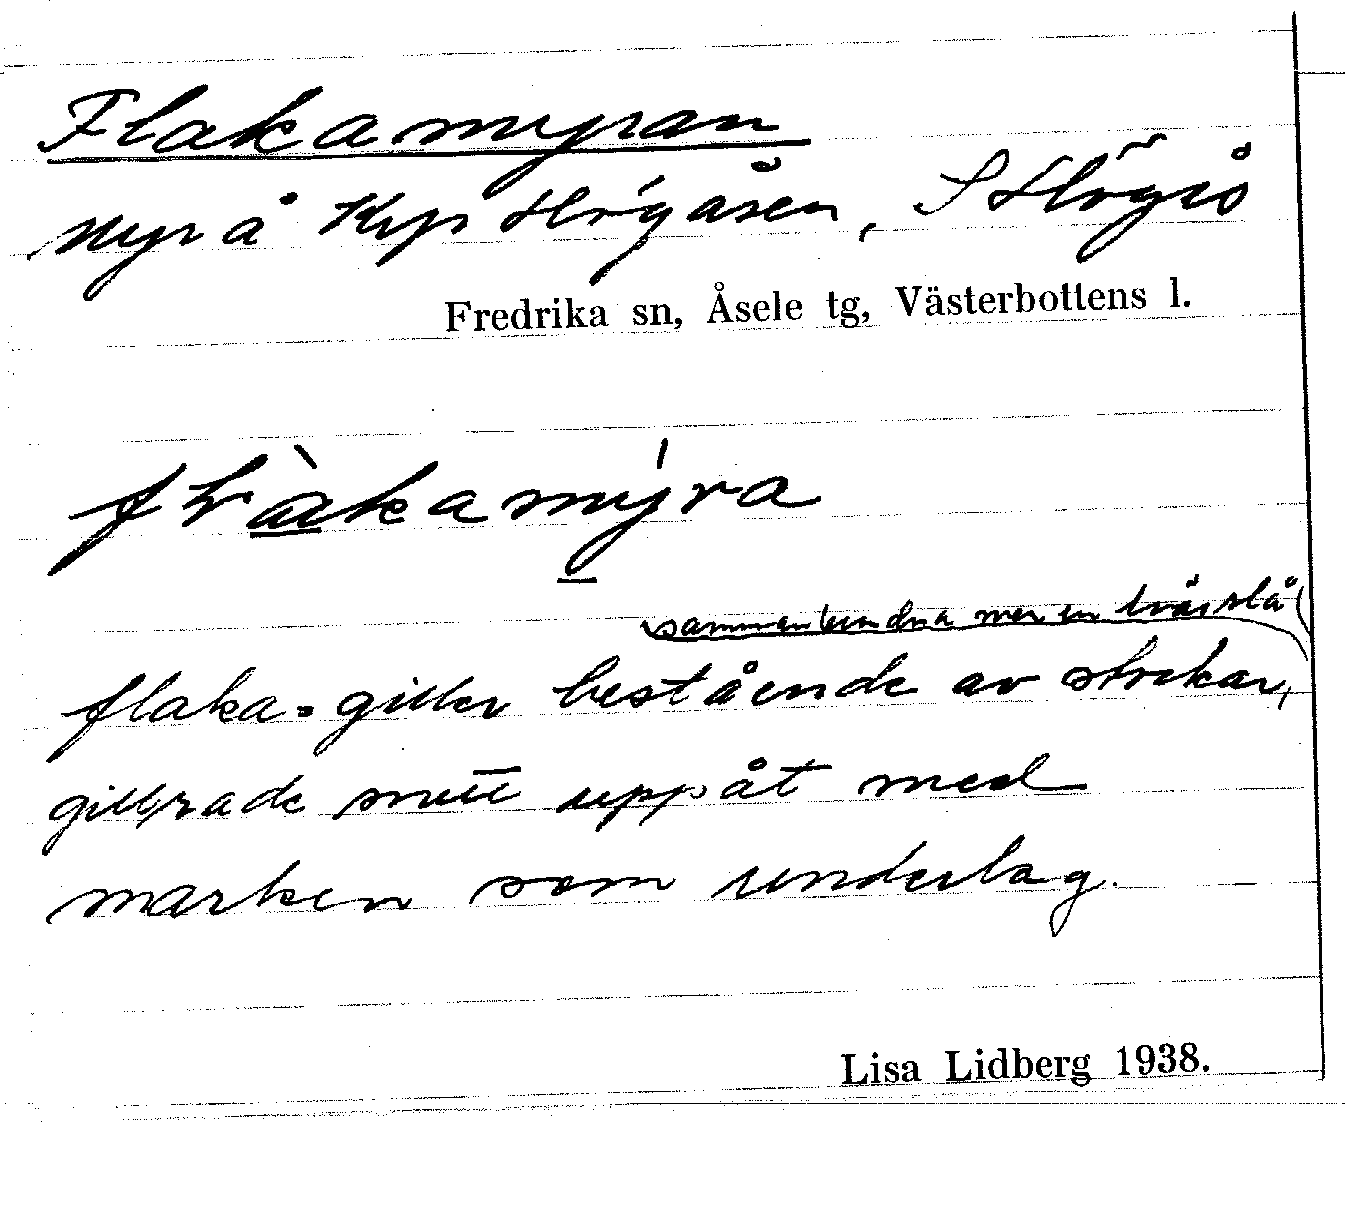 Flakamyran
Myr å Krp Högåsen, S Högås
Fredrika sn, Åsele tg, Västerbottens l.
flàkamýra
sammanbundna med en tvärslå
flaka = giller bestående av stockar,
gillrade snett uppåt med
marken som underlag.
Lisa Lidberg 1938.